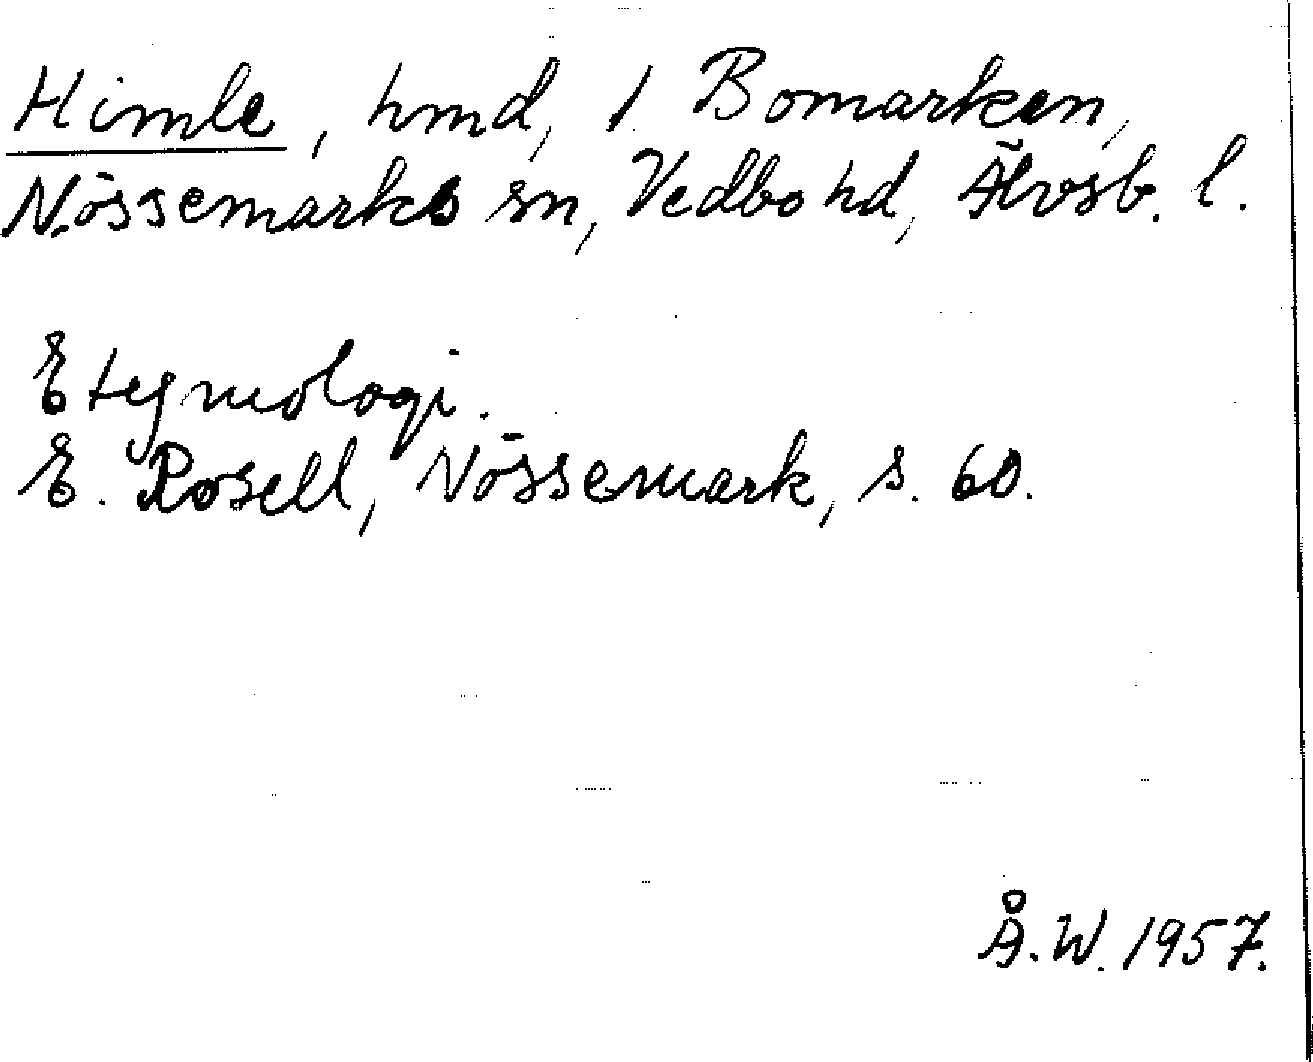 Himle, hmd, 1 Bomarken,
Nössemarks sn, Vedbo hd, Älvsb. l.
Etymologi.
E. Rosell, Nössemark, s. 60.
Å.W. 1957.